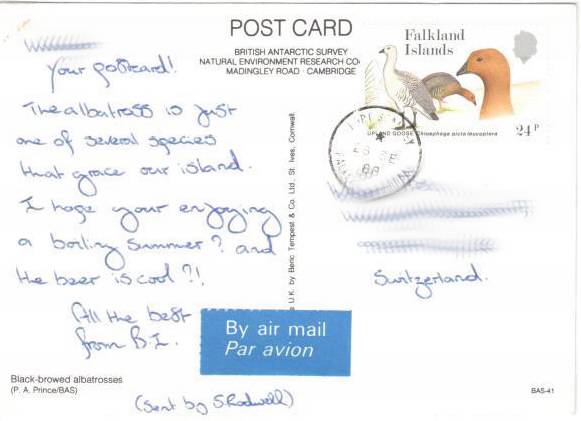 POST CARD
BRITISH ANTARCTIC SURVEY
NATURAL ENVIRONMENT RESEARCH CO
MADINGLEY ROAD · CAMBRIDGE
Falkland
Islands
UPLAND GOOSE Chloephaga picta leucoptera
24P
your postcard!
The albatross is just
one of several species
that grace our island.
I hope your enjoying
a boiling summer? and
the beer is cool?!
All the best
from B.I.
(Sent by S.Rodwell)
Switzerland.
By air mail
Par avion
U.K. by Beric Tempest & Co. Ltd., St. Ives, Cornwall.
Black-browed albatrosses
(P. A. Prince/BAS)
BAS-41